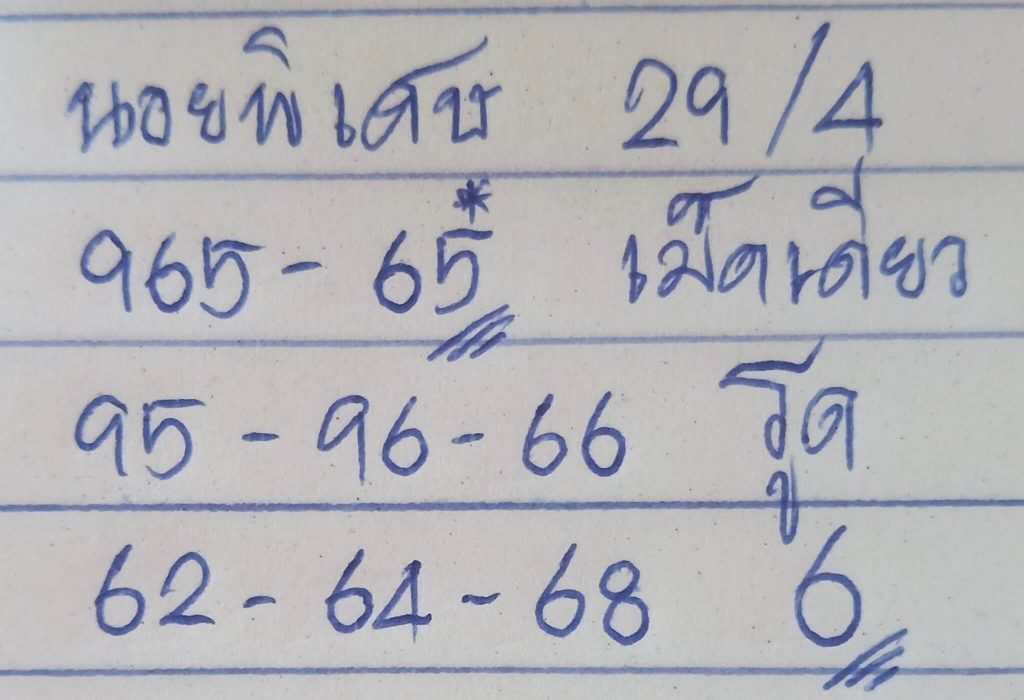 นอยพิเศษ 29/4
965 - 65* เม็ดเดียว
95 - 96 - 66 รูด
62 - 64 - 68 6